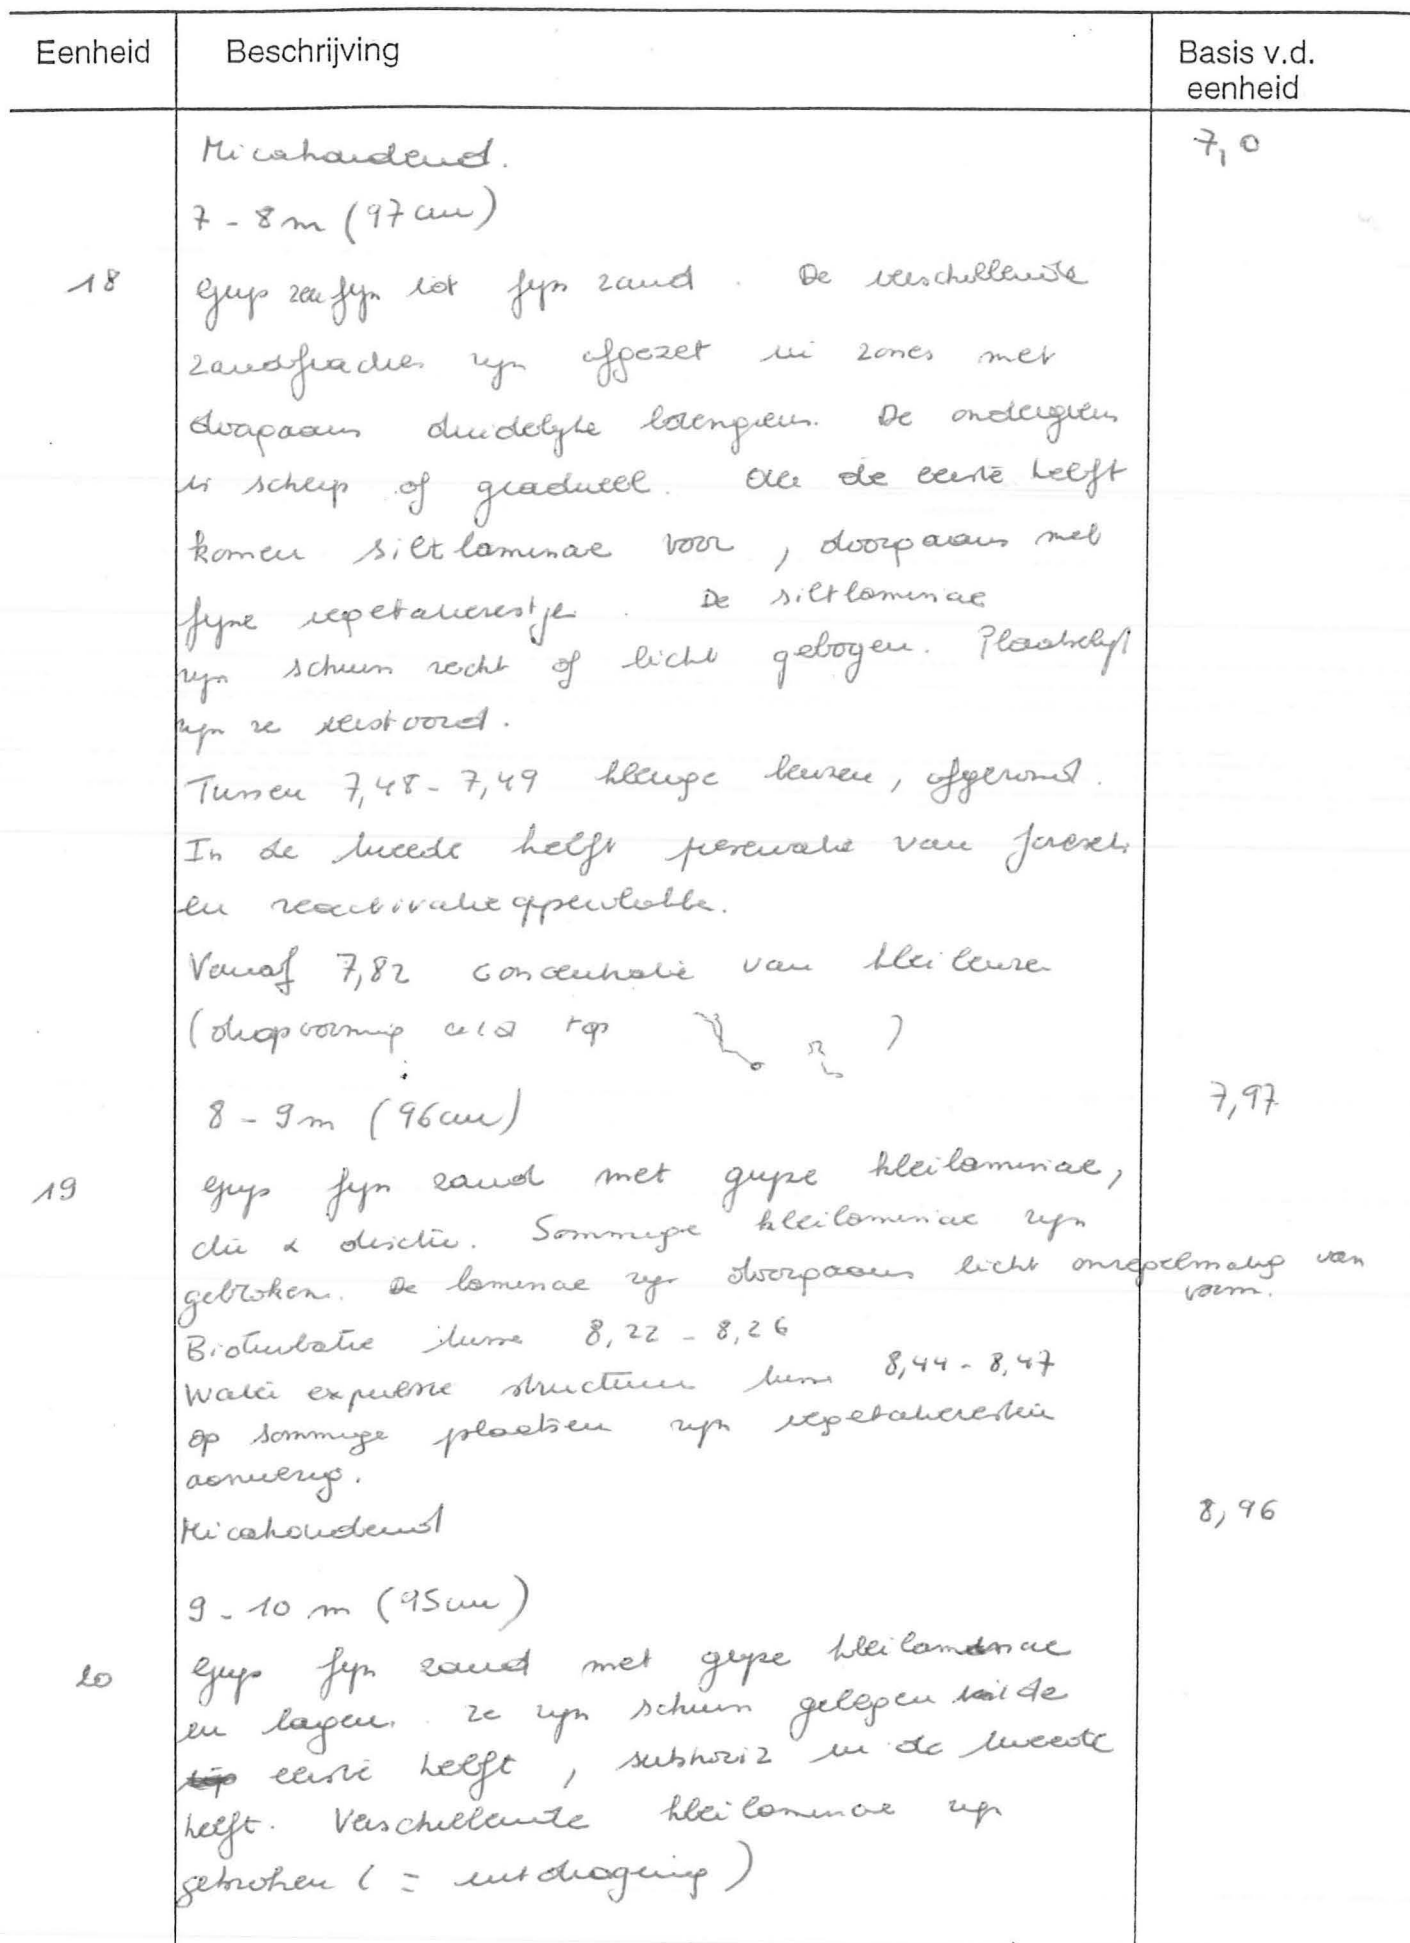 Eenheid Beschrijving Basis v.d.
eenheid
Micahoudend. 7,0
7 - 8 m (97 cm)
18 Grijs zeer fijn tot fijn zand. De verschillende
zandfracties zijn afgezet in zones met
doorgaans duidelijke bovengrens. De ondergrens
is scherp of gradueel. In de eerste helft
komen siltlaminae voor, doorgaans met
fijne vegetatierestjes. De siltlaminae
zijn schuin recht of licht gebogen. Plaatselijk
zijn ze verstoord.
Tussen 7,48 - 7,49 kleiige lenzen, afgerond.
In de tweede helft preservatie van foresets
en reactivatieoppervlakte.
Vanaf 7,82 concentratie van klei lenzen
(dropvormig top )
7,97
8 - 9 m (96 cm)
19 Grijs fijn zand met grijze kleilaminae,
Sommige kleilaminae zijn
gebroken. De laminae zijn doorgaans licht onregelmatig van
vorm.
Bioturbatie tussen 8,22 - 8,26
Water expulsie structuur tussen 8,44 - 8,47
Op sommige plaatsen zijn vegetatieresten
aanwezig.
Micahoudend 8,96
9 - 10 m (95 cm)
20 Grijs fijn zand met grijze kleilaminae
en lagen. Ze zijn schuin gelegen in de
eerste helft, subhoriz in de tweede
helft. Verschillende kleilaminae zijn
gebroken ( = uitdroging)